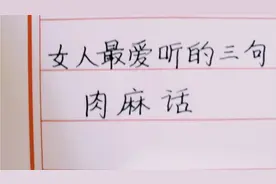 女人最爱听的三句
肉麻话